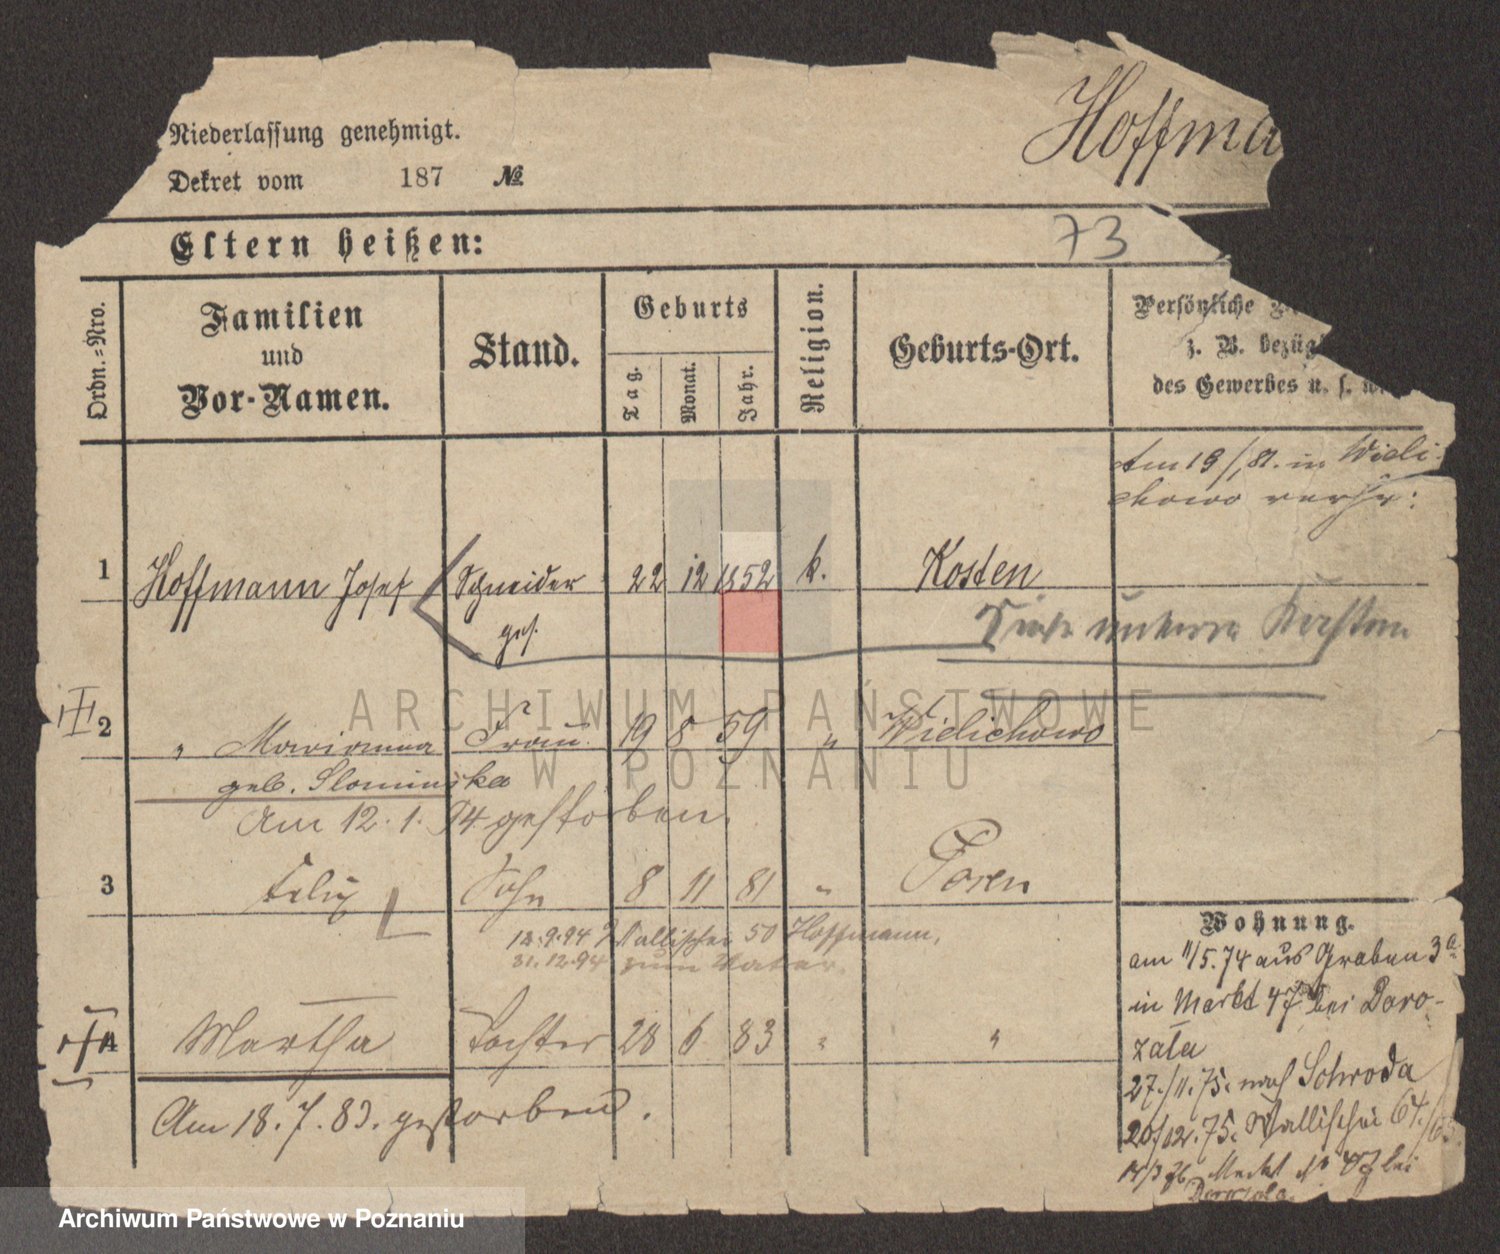 Niederlassung genehmigt.
Dekret vom 187 №
Hoffma
Eltern heißen:
73
Ordn.=Nro.
Familien
und
Vor-Namen.
Stand.
Geburts
Tag.
Monat.
Jahr.
Religion.
Geburts-Ort.
Persönliche
z. B. bezüg
des Gewerbes u. s. w.
Am 19/1.81. in Wieli-
chowo verh:
1 Hoffmann Josef Schneider 22 12 1852 k. Kosten
ges.
Siehe unteren
2 " Marianna Frau 19 8 59 " Wielichowo
geb. Slominska
Am 12. 1. 94 gestorben.
3 Felix Sohn 8 11 81 " Posen
12.9.94 Wallischei 50 Hoffmann,
31.12.94 zum Vater.
4 Martha Tochter 28 6 83 " "
Am 18. 7. 83. gestorben.
Wohnung.
am 11/5. 74 aus Graben 3a
in Markt 47 bei Doro-
zala
27./11. 75. nach Schroda
20/12. 75. Wallischei 64/65.
Markt № 47 bei
Dorozala
ARCHIWUM PAŃSTWOWE
W POZNANIU
Archiwum Państwowe w Poznaniu